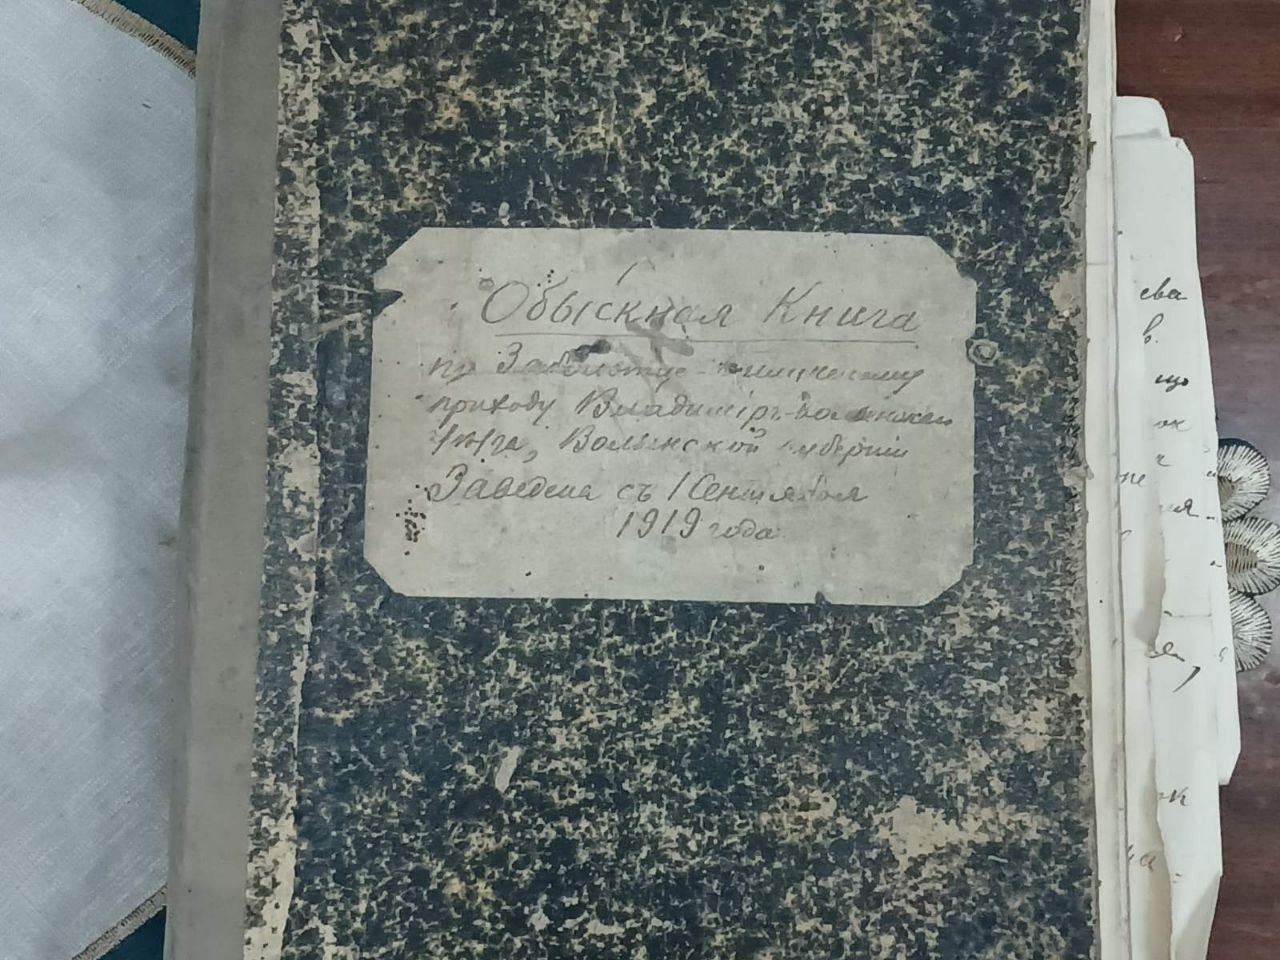 Обыскная Книга
по
приходу Владимiръ-Волынскаго
уѣзда, Волынской губернiи
Заведена съ 1 Сентября
1919 года
ева
в.
що
ок